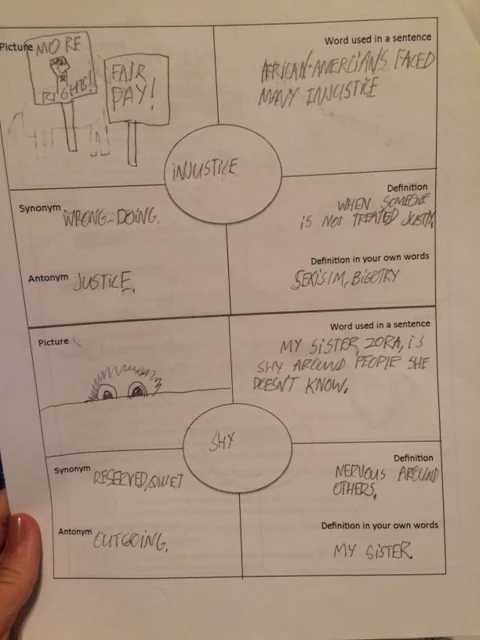 Picture
MORE
RIGHTS!!
FAIR
PAY!
Word used in a sentence
AFRICAN-AMERCIANS FACED
MANY INJUSTICE
INJUSTICE
Synonym
WRONG-DOING.
Antonym JUSTICE.
Definition
WHEN SOMEONE
IS NOT TREATED JUSTLY.
Definition in your own words
SEXISIM, BIGOTRY
Picture
Word used in a sentence
MY SISTER, ZORA, IS
SHY AROUND PEOPLE SHE
DOESN'T KNOW.
SHY
Synonym RESERVED, QUIET
Antonym OUTGOING.
Definition
NERVOUS AROUND
OTHERS.
Definition in your own words
MY SISTER.